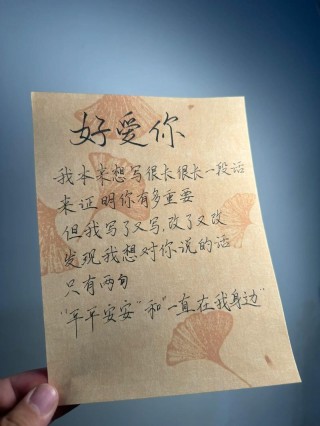 好爱你
我本来想写很长很长一段话
来证明你有多重要
但我写了又写,改了又改
发现我想对你说的话
只有两句
"平平安安"和"一直在我身边"